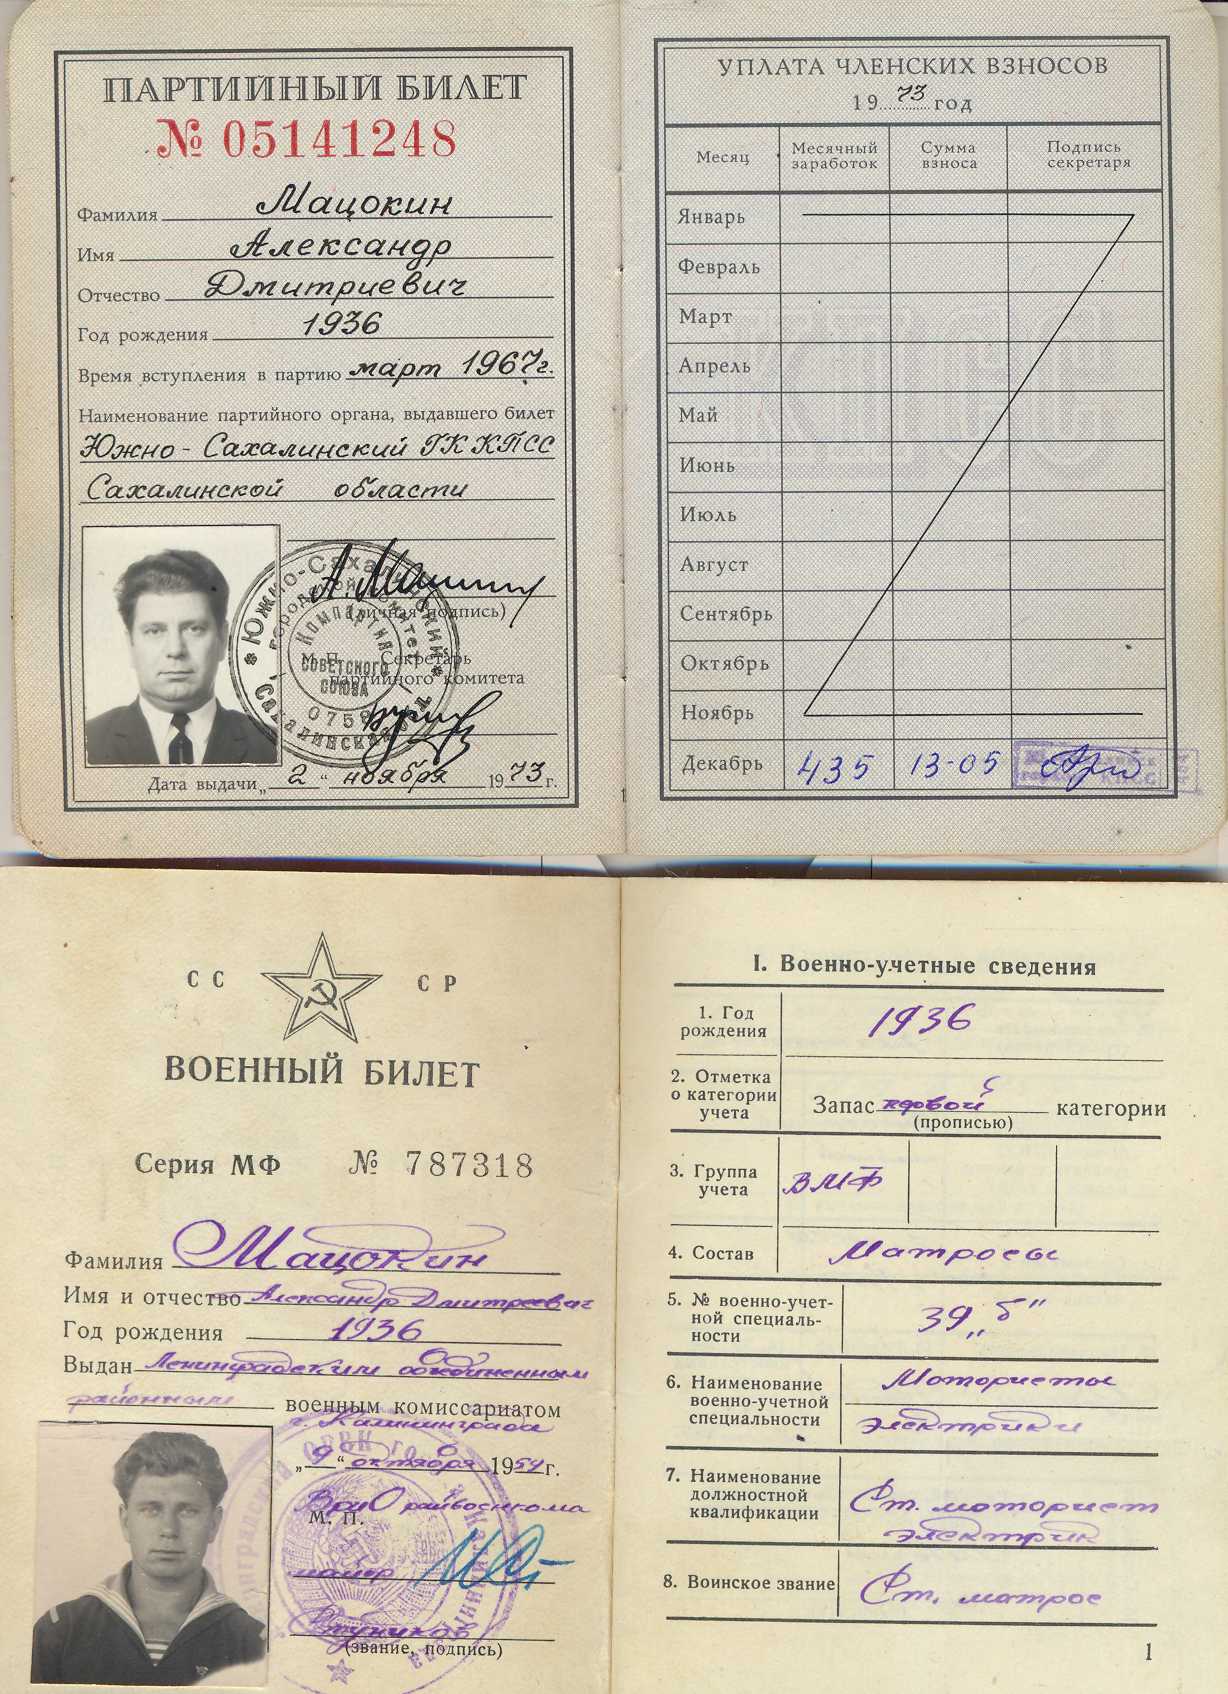 ПАРТИЙНЫЙ БИЛЕТ
№ 05141248
Фамилия Мацокин
Имя Александр
Отчество Дмитриевич
Год рождения 1936
Время вступления в партию март 1967г.
Наименование партийного органа, выдавшего билет
Южно-Сахалинский ГК КПСС
Сахалинской области
(личная подпись)
М. П. Секретарь
партийного комитета
Южно-Сахалинский
городской комитет
Компартия
Советского
Союза
Дата выдачи „2“ ноября 1973г.
УПЛАТА ЧЛЕНСКИХ ВЗНОСОВ
1973 год
Месяц Месячный заработок Сумма взноса Подпись секретаря
Январь
Февраль
Март
Апрель
Май
Июнь
Июль
Август
Сентябрь
Октябрь
Ноябрь
Декабрь 435 13-05
СС СР
ВОЕННЫЙ БИЛЕТ
Серия МФ № 787318
Фамилия Мацокин
Имя и отчество Александр Дмитреевич
Год рождения 1936
Выдан Ленинградским объединенным
районным военным комиссариатом
г. Калининграда
„9“ октября 1954г.
М. П.
майор
(звание, подпись)
I. Военно-учетные сведения
1. Год рождения 1936
2. Отметка о категории учета Запас первой категории
(прописью)
3. Группа учета ВМФ
4. Состав Матросы
5. № военно-учет-
ной специаль-
ности 39 „б“
6. Наименование Мотористы
военно-учетной
специальности электрики
7. Наименование
должностной Ст. моторист
квалификации электрик
8. Воинское звание Ст. матрос
1